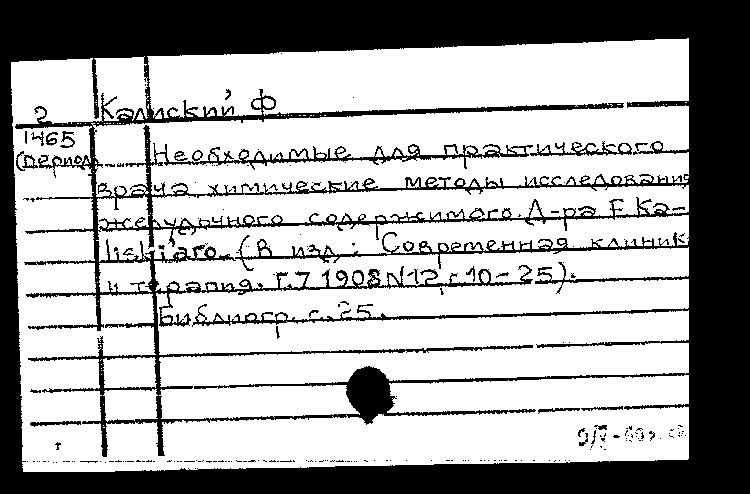 2 Калиский, Ф
1465
(период)
Необходимые для практического
врача химические методы исследования
желудочного содержимого. Д-ра F. Ka-
liski'aго. (В изд.: Современная клиник
и терапия. Г.7 1908 N12, с.10-25).
Библиогр. с. 25.